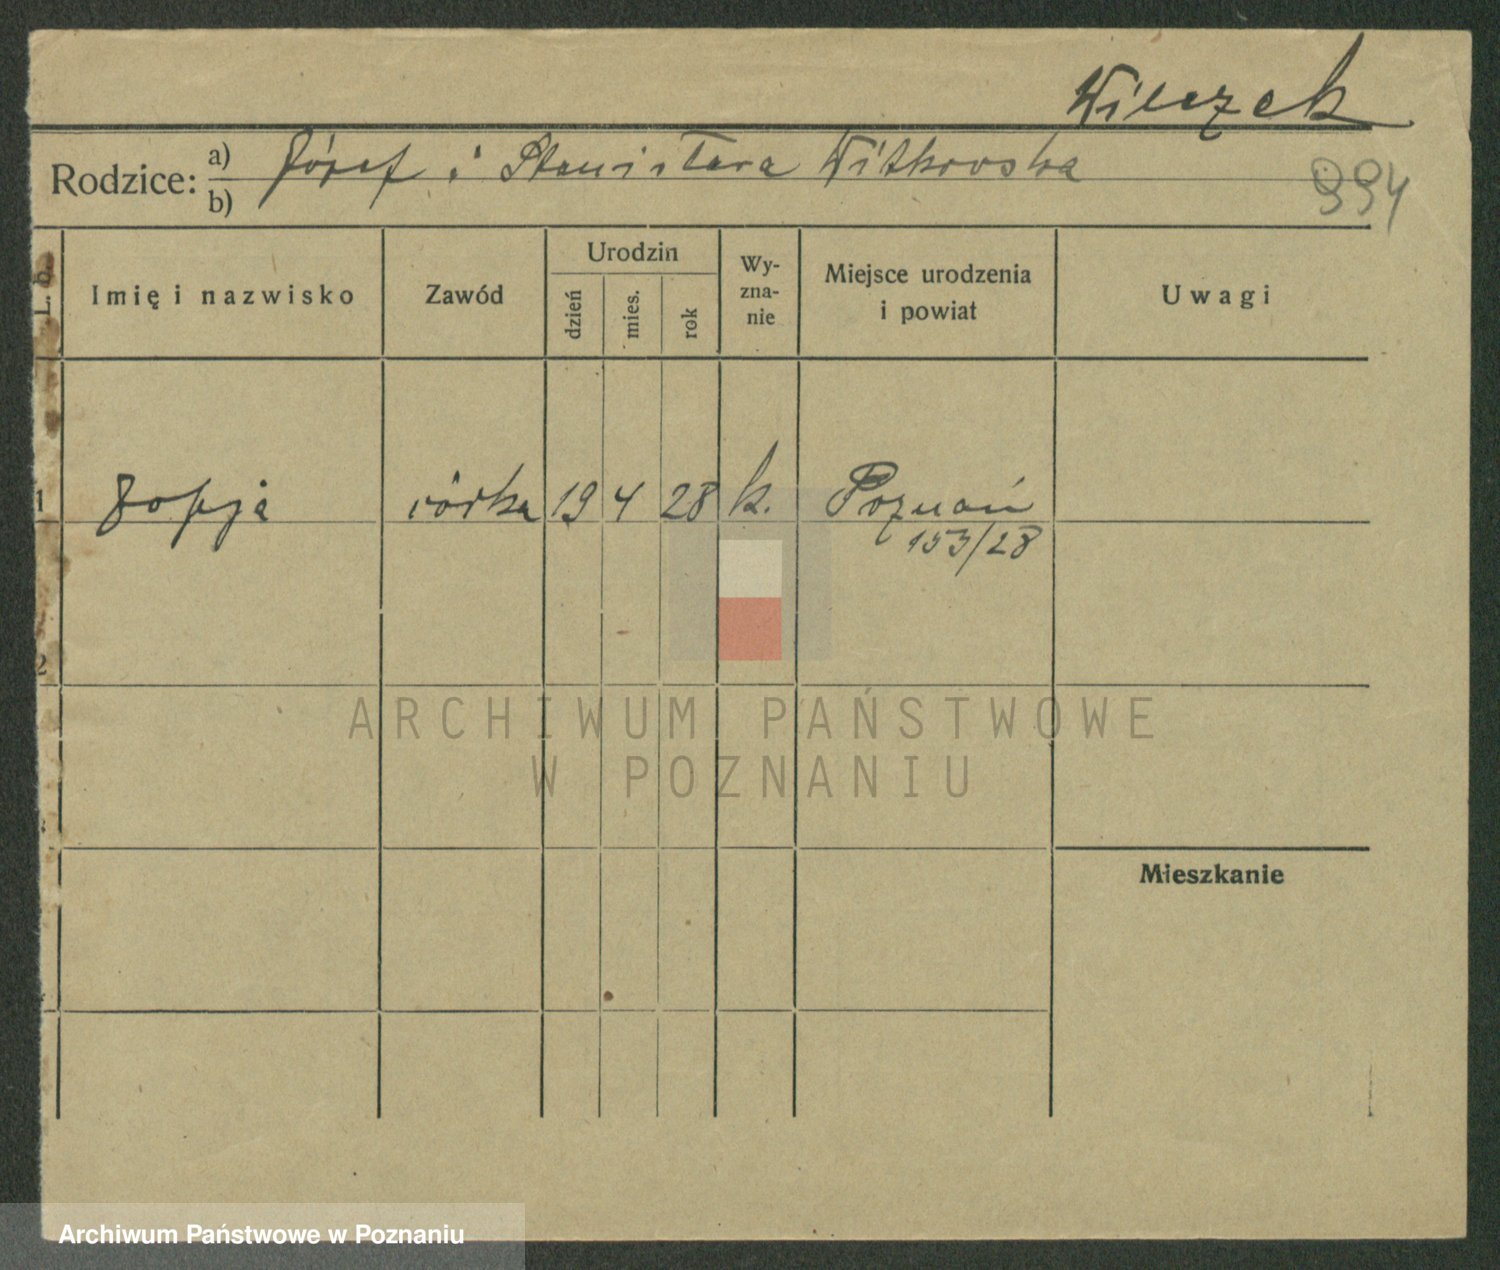 Wilczek
Rodzice: a) Józef i Stanisława Witkowska
b)
994
L. b.
Imię i nazwisko
Zawód
Urodzin
dzień
mies.
rok
Wy-
zna-
nie
Miejsce urodzenia
i powiat
Uwagi
1 Zofja córka 19 4 28 k. Poznań
153/28
2
ARCHIWUM PAŃSTWOWE
W POZNANIU
Mieszkanie
Archiwum Państwowe w Poznaniu